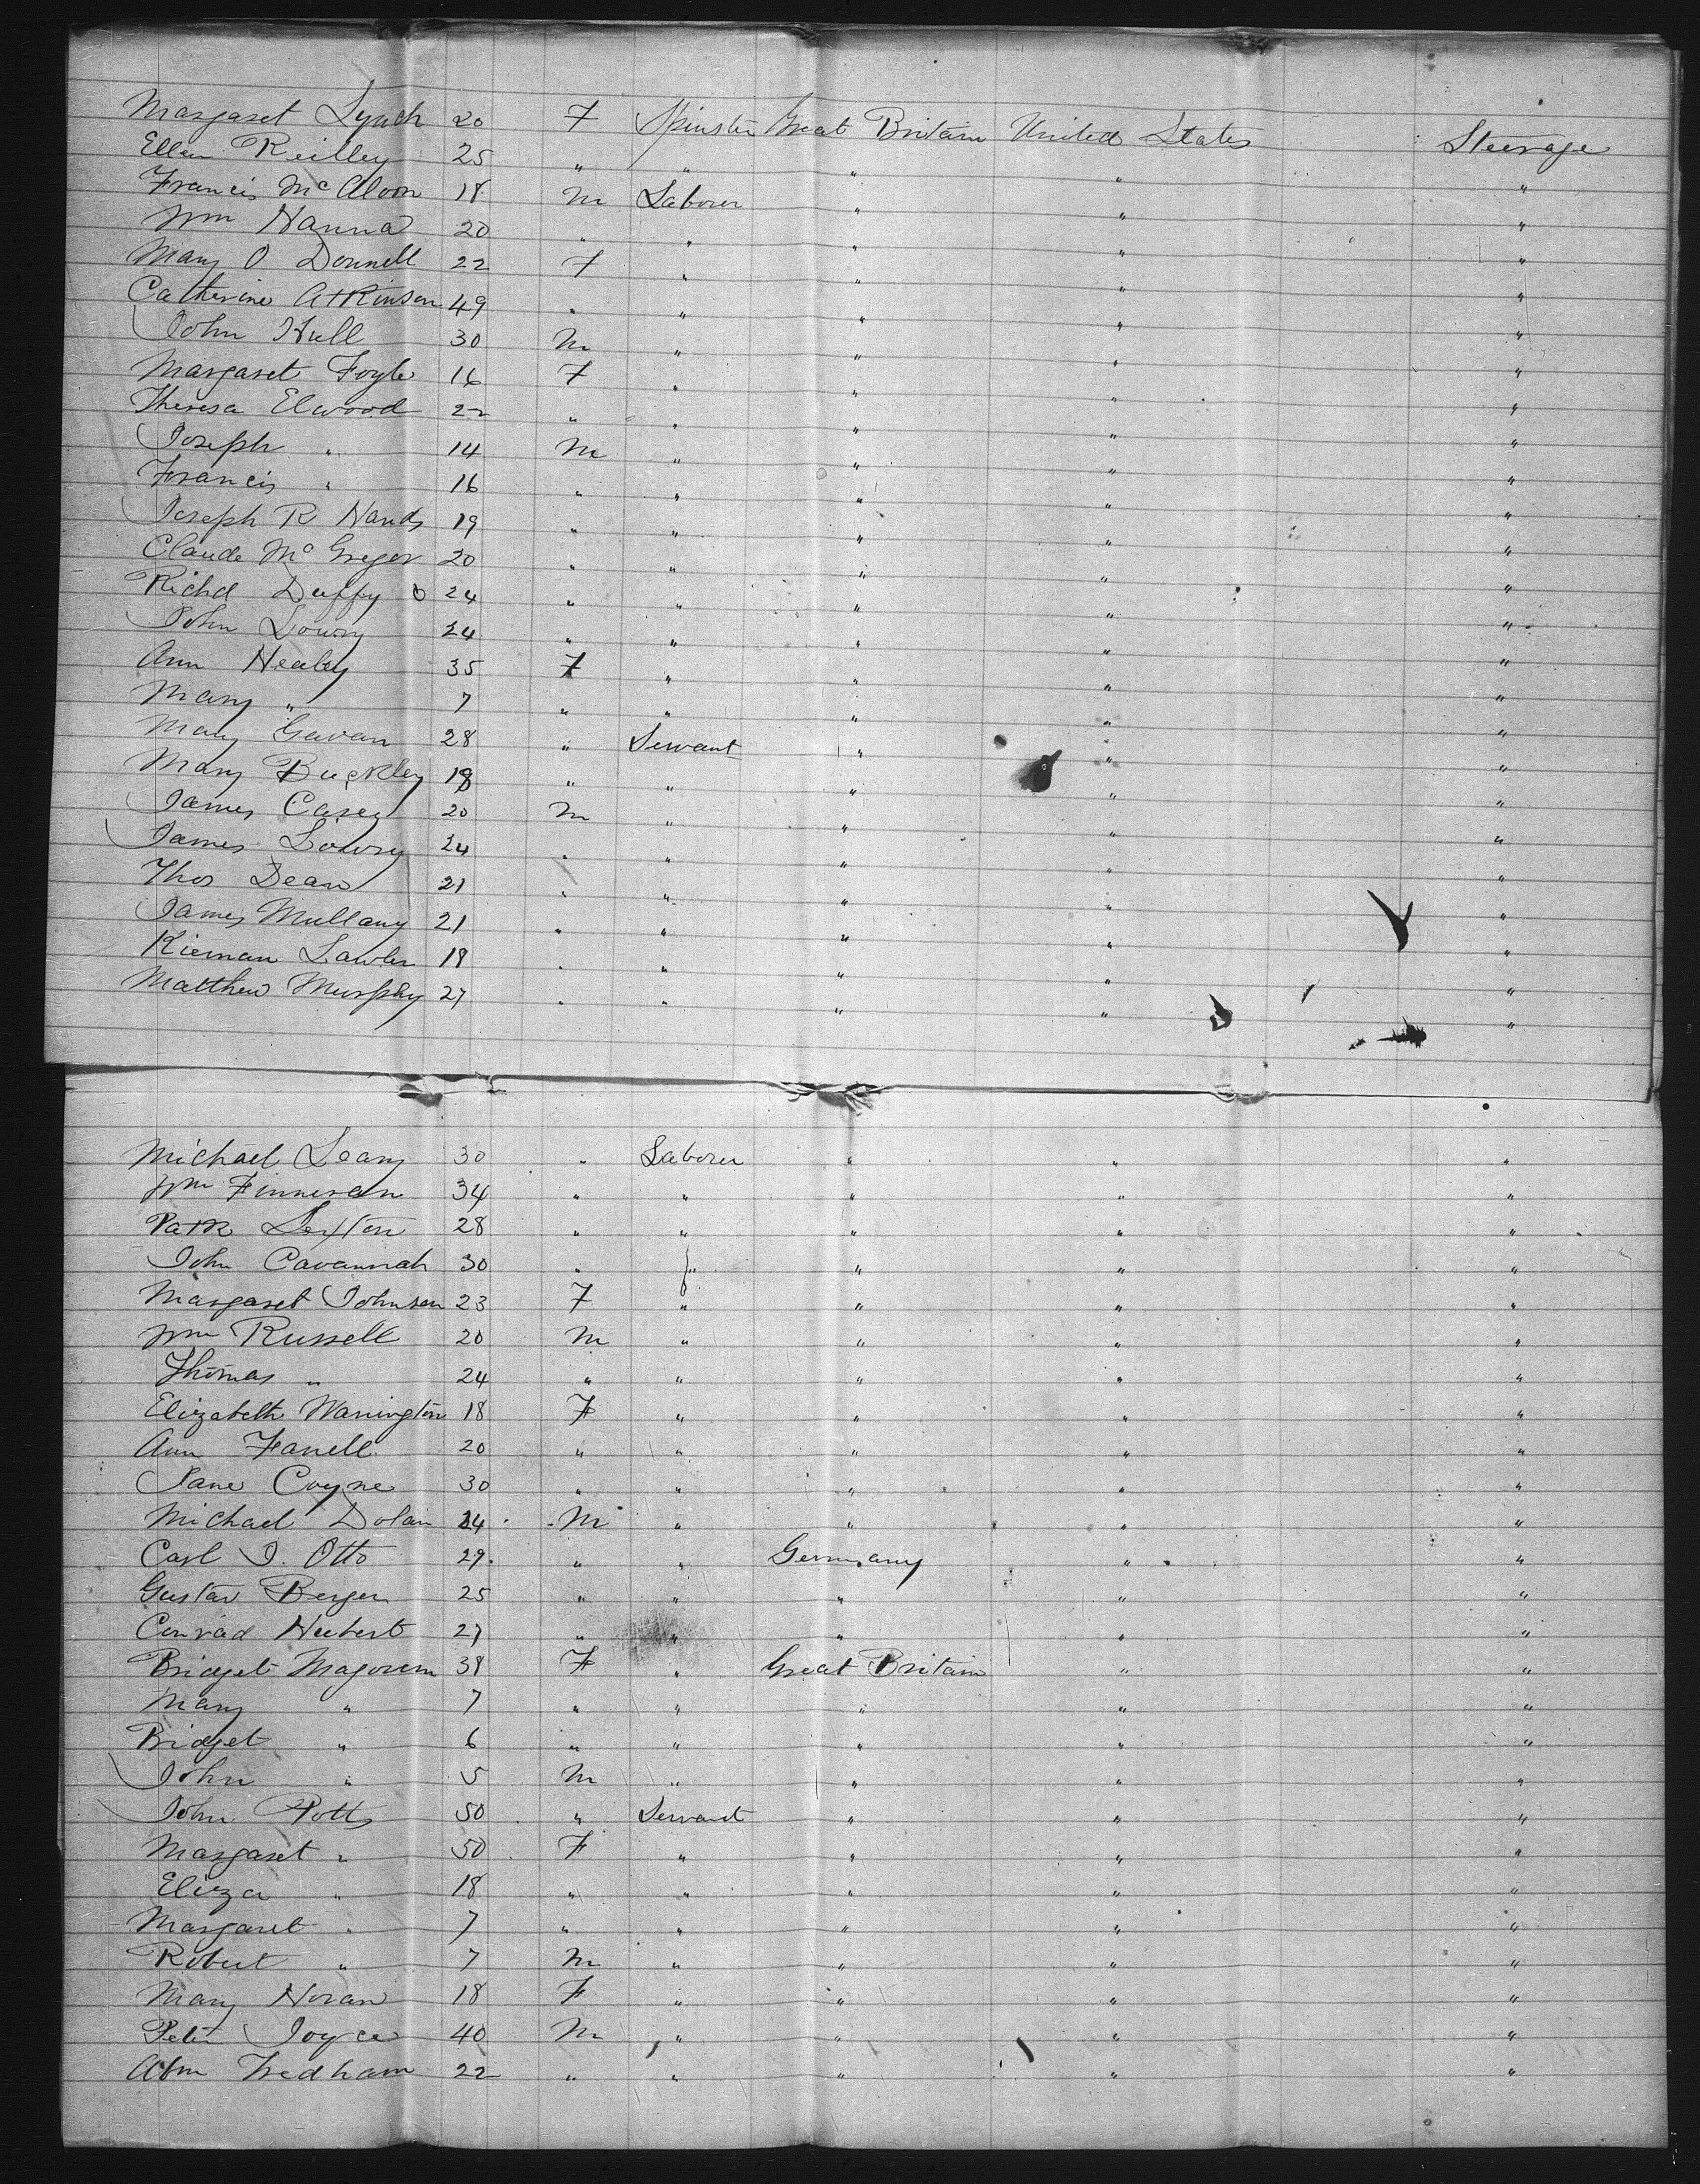 Margaret Lynch 20 F Spinster Great Britain United States Steerage
Ellen Reilley 25 " " " " "
Francis McAloon 18 M Laborer " " "
Wm Hanna 20 " " " " "
Mary O Donnell 22 F " " " "
Catherine Atkinson 49 " " " " "
John Hull 30 M " " " "
Margaret Foyle 16 F " " " "
Theresa Elwood 22 " " " " "
Joseph " 14 M " " " "
Francis " 16 " " " " "
Joseph R Hands 19 " " " " "
Claude McGregor 20 " " " " "
Richd Duffy 24 " " " " "
John Lowry 24 " " " " "
Ann Healey 35 F " " " "
Mary " 7 " " " " "
Mary Gavan 28 " Servant " " "
Mary Buckley 18 " " " " "
James Casey 20 M " " " "
James Lowry 24 " " " " "
Thos Dean 21 " " " " "
James Mullany 21 " " " " "
Kiernan Lawler 19 " " " " "
Matthew Murphy 27 " " " " "
Michael Leary 30 " Laborer " " "
Wm Finneran 34 " " " " "
Patk Sexton 28 " " " " "
John Cavannah 30 " " " " "
Margaret Johnson 23 F " " " "
Wm Russell 20 M " " " "
Thomas " 24 " " " " "
Elizabeth Warrington 18 F " " " "
Ann Farrell 20 " " " " "
Jane Coyne 30 " " " " "
Michael Dolan 24 M " " " "
Carl J. Otto 29 " " Germany " "
Gustav Berger 25 " " " " "
Conrad Hubert 27 " " " " "
Bridget Magovern 38 F " Great Britain " "
Mary " 7 " " " " "
Bridget " 6 " " " " "
John " 5 M " " " "
John Potts 50 " Servant " " "
Margaret " 50 F " " " "
Eliza " 18 " " " " "
Margaret " 7 " " " " "
Robert " 7 M " " " "
Mary Horan 18 F " " " "
Peter Joyce 40 M " " " "
Abm 22 " " " " "